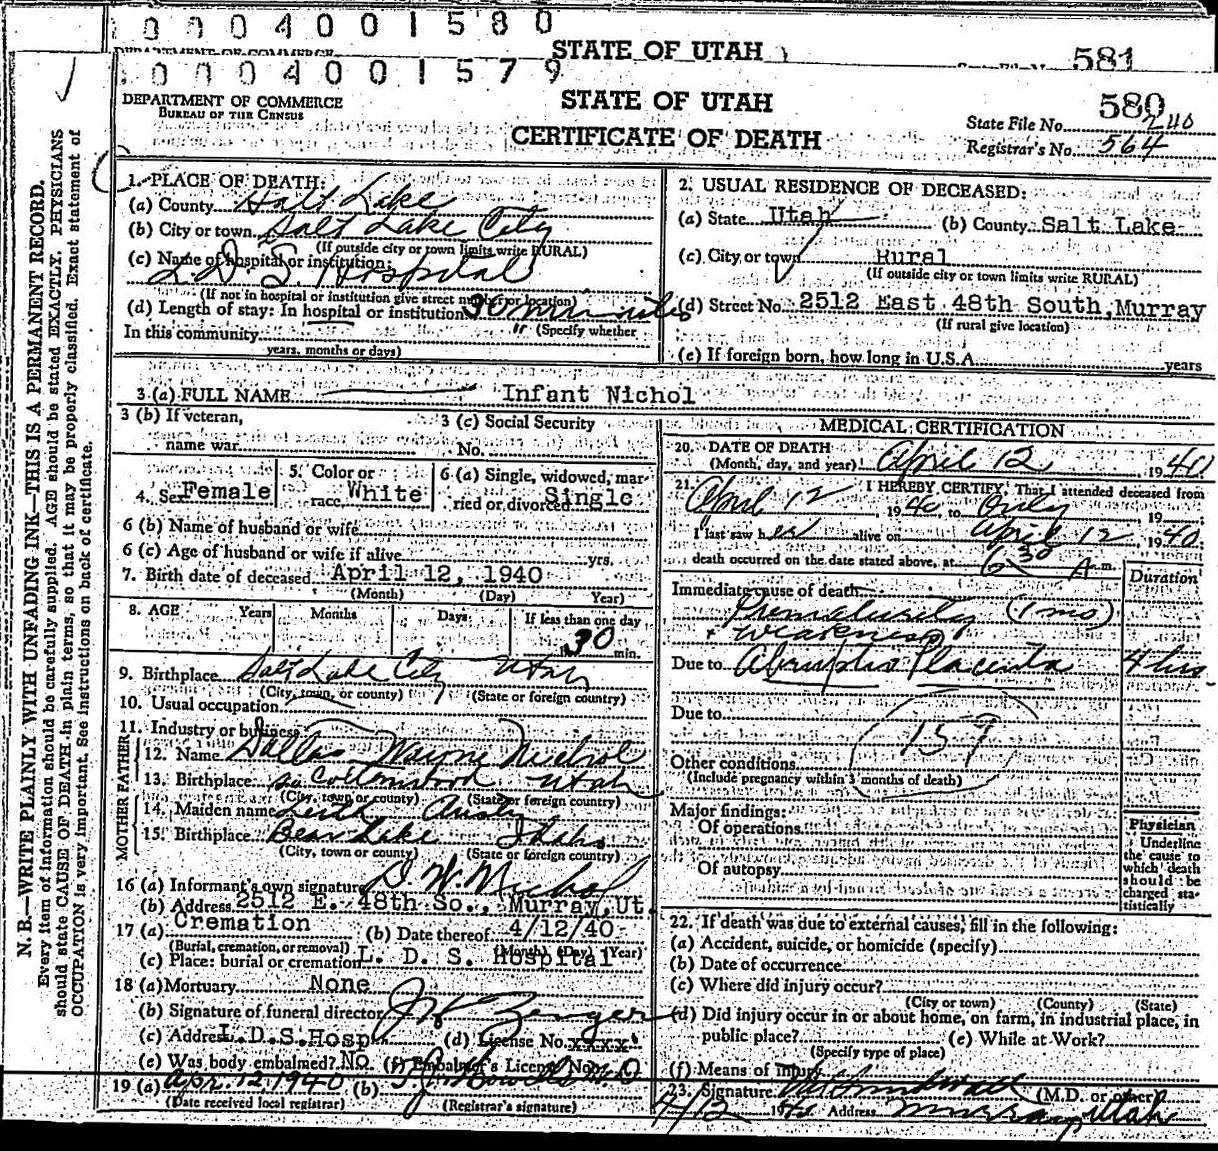 0004001580
DEPARTMENT OF COMMERCE STATE OF UTAH 581
0004001579
DEPARTMENT OF COMMERCE
BUREAU OF THE CENSUS
STATE OF UTAH
CERTIFICATE OF DEATH
580
State File No. 240
Registrar's No. 564
N. B.—WRITE PLAINLY WITH UNFADING INK—THIS IS A PERMANENT RECORD.
Every item of information should be carefully supplied. AGE should be stated EXACTLY. PHYSICIANS
should state CAUSE OF DEATH in plain terms, so that it may be properly classified. Exact statement of
OCCUPATION is very important. See instructions on back of certificate.
1. PLACE OF DEATH:
(a) County Salt Lake
(b) City or town Salt Lake City
(If outside city or town limits write RURAL)
(c) Name of hospital or institution:
L. D. S. Hospital
(If not in hospital or institution give street number or location)
(d) Length of stay: In hospital or institution 30 minutes
(Specify whether
In this community "
years, months or days)
2. USUAL RESIDENCE OF DECEASED:
(a) State Utah (b) County Salt Lake
(c) City or town Rural
(If outside city or town limits write RURAL)
(d) Street No. 2512 East 48th South, Murray
(If rural give location)
(e) If foreign born, how long in U.S.A. years
3 (a) FULL NAME Infant Nichol
3 (b) If veteran, 3 (c) Social Security
name war No.
4. Sex Female 5. Color or race White 6 (a) Single, widowed, married or divorced Single
6 (b) Name of husband or wife
6 (c) Age of husband or wife if alive yrs.
7. Birth date of deceased April 12, 1940
(Month) (Day) Year)
8. AGE Years Months Days If less than one day
30 min.
9. Birthplace Salt Lake City Utah
(City, town, or county) (State or foreign country)
10. Usual occupation
11. Industry or business
FATHER
12. Name Dallas Wayne Nichol
13. Birthplace So Cottonwood Utah
(City, town or county) (State or foreign country)
MOTHER
14. Maiden name
15. Birthplace Bear Lake Idaho
(City, town or county) (State or foreign country)
16 (a) Informant's own signature D. W. Nichol
(b) Address 2512 E. 48th So., Murray, Ut.
17 (a) Cremation (b) Date thereof 4/12/40
(Burial, cremation, or removal) (Month) (Day) (Year)
(c) Place: burial or cremation L. D. S. Hospital
18 (a) Mortuary None
(b) Signature of funeral director
(c) Address L.D.S. Hosp. (d) License No. xxxx
(e) Was body embalmed? No (f) Embalmer's License No.
19 (a) Apr. 12, 1940 (b)
(Date received local registrar) (Registrar's signature)
MEDICAL CERTIFICATION
20. DATE OF DEATH
(Month, day, and year) April 12 1940
21. I HEREBY CERTIFY That I attended deceased from
April 12, 1940, to Only, 19
I last saw her alive on April 12 1940
death occurred on the date stated above, at 6 30 A m.
Immediate cause of death Duration
Prematurity (1 mo)
+ weakness
Due to Abruptio Placenta 4 hrs
Due to
159
Other conditions
(Include pregnancy within 3 months of death)
Major findings:
Of operations
Of autopsy
Physician
Underline
the cause to
which death
should be
charged sta-
tistically
22. If death was due to external causes, fill in the following:
(a) Accident, suicide, or homicide (specify)
(b) Date of occurrence
(c) Where did injury occur?
(City or town) (County) (State)
(d) Did injury occur in or about home, on farm, in industrial place, in
public place? (e) While at Work?
(Specify type of place)
(f) Means of Injury
23. Signature (M.D. or other)
4/12 1940 Address Murray, Utah